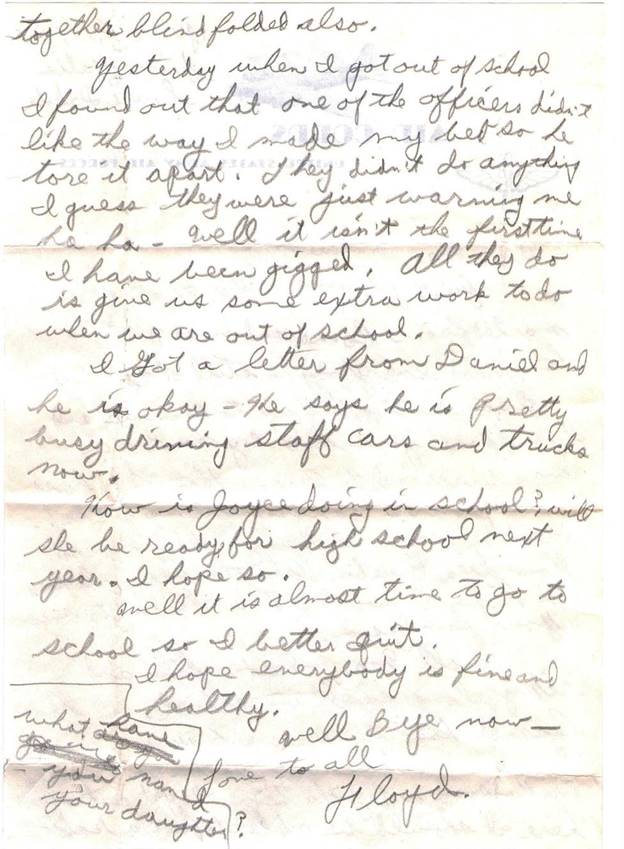 together blindfolded also.
Yesterday when I got out of school
I found out that one of the officers didn't
like the way I made my bed so he
tore it apart. They didn't do anything
I guess they were just warning me
ha ha - Well it isn't the first time
I have been gigged. All they do
is give us some extra work to do
when we are out of school.
I Got a letter from Daniel and
he is okay - He says he is pretty
busy driving staff cars and trucks
now.
How is Joyce doing in school? will
she be ready for high school next
year. I hope so.
Well it is almost time to go to
school so I better quit.
I hope everybody is fine and
healthy.
Well Bye now -
Love to all
Floyd.
what have
you named
your daughter?